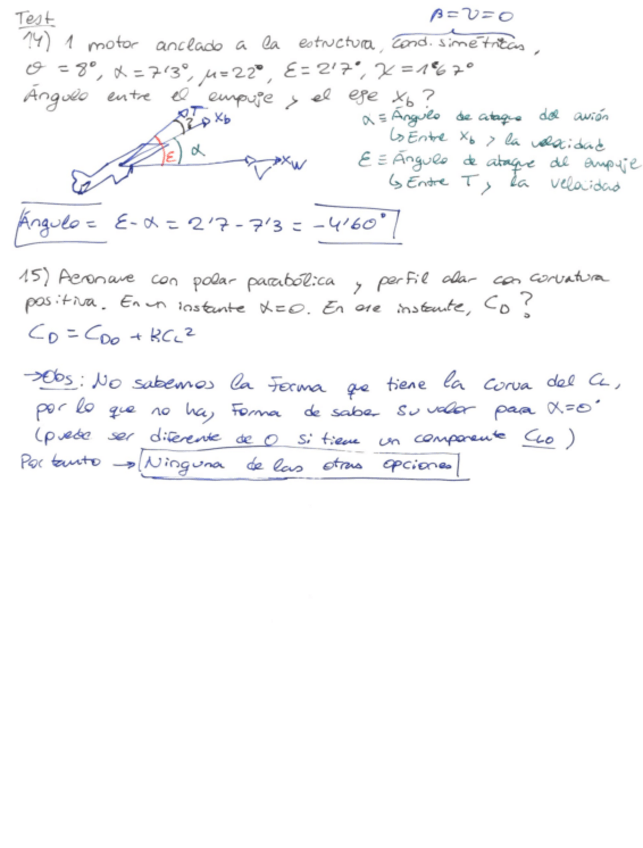 Test
β=ν=0
14) 1 motor anclado a la estructura, cond. simétricas,
θ = 8°, α = 7'3°, μ = 22°, ε = 2'7°, χ = 1°67°
Ángulo entre el empuje y el eje Xb?
T
? Xb
ε α
V Xw
α ≡ Ángulo de ataque del avión
↳ Entre Xb y la velocidad
ε ≡ Ángulo de ataque del empuje
↳ Entre T y la velocidad
Ángulo = ε - α = 2'7 - 7'3 = -4'60°
15) Aeronave con polar parabólica y perfil alar con curvatura
positiva. En un instante α=0. En ese instante, CD?
CD = CD0 + KCL²
→Obs: No sabemos la forma que tiene la curva del CL,
por lo que no hay forma de saber su valor para α=0°
(puede ser diferente de 0 si tiene un componente CL0)
Por tanto → Ninguna de las otras opciones